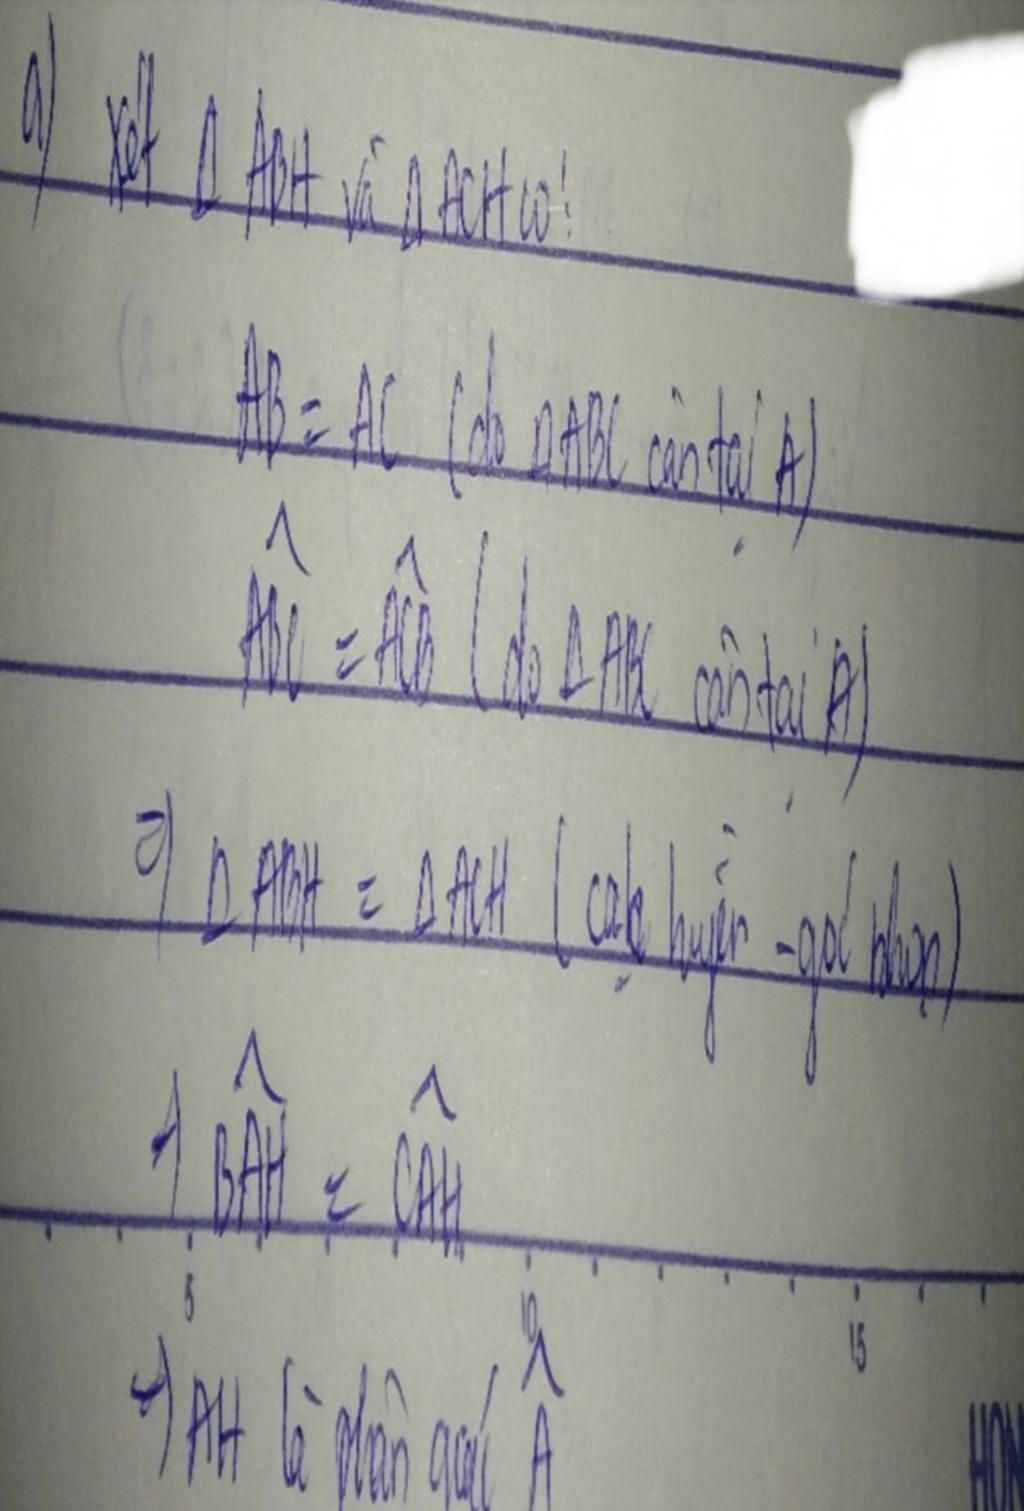 a) Xét Δ ABH và Δ ACH có:
AB = AC (do Δ ABC cân tại A)
\widehat{ABC} = \widehat{ACB} (do Δ ABC cân tại A)
=) Δ ABH = Δ ACH (cạnh huyền - góc nhọn)
=) \widehat{BAH} = \widehat{CAH}
5 10 15
=) AH là phân giác \widehat{A}
HON